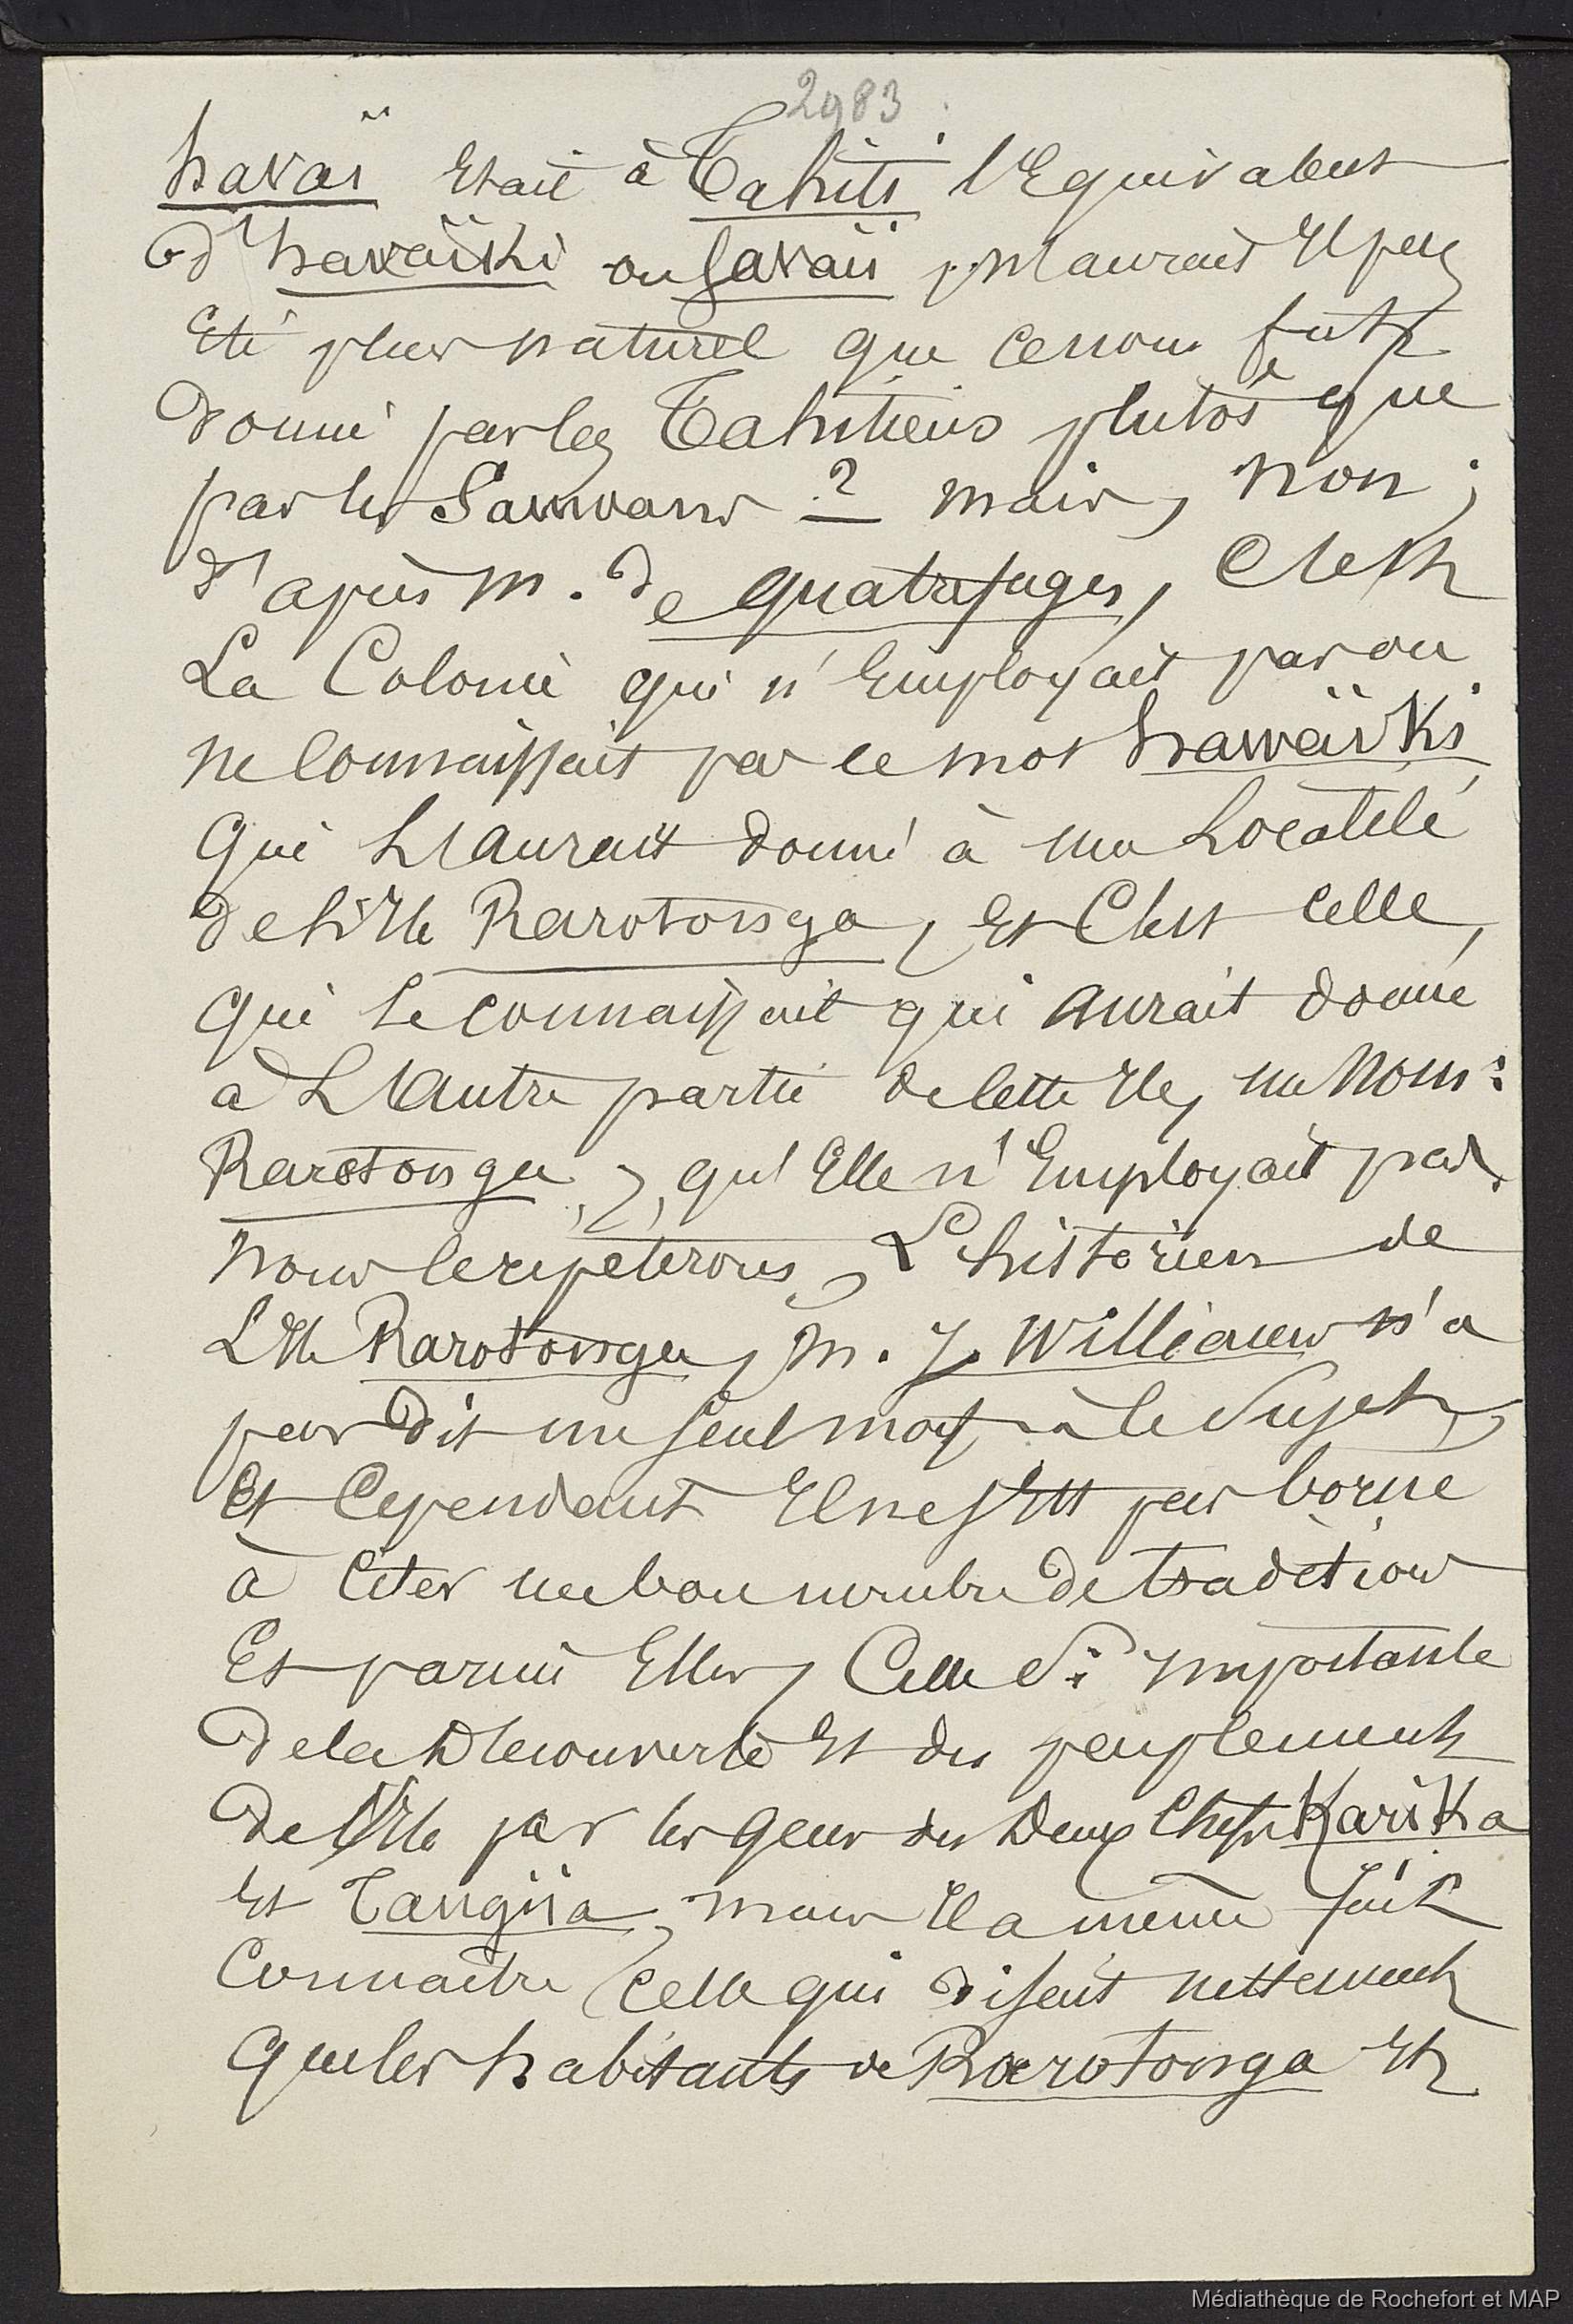 2983
havaï Etait à Tahiti l'Equivalent
d'havaïki ou Savaii, n'aurait Il pas
Eté plus naturel que ce nom fut
donné par les Tahitiens plutôt que
par les Samoans ? mais, non ;
d'après M. de quatrefages, C'est
La Colonie qui n'Employait pas ou
ne Connaissait pas le mot hawaïki
qui L'aurait donné à une Localité
de L'Ile Rarotonga, Et C'est Celle,
qui Le connaissait qui aurait donné
a L'Autre partie de Cette Ile, un Nom :
Rarotonga, qu'Elle n'Employait pas.
Nous le repeterons, L'historien de
L'Ile Rarotonga, M. J. Williams n'a
pas dit un seul mot à Ce Sujet,
Et Cependant Il ne s'Est pas borné
à Citer un bon nombre de traditions
Et parmi Elles, Celle Si Importante
de la Découverte Et du peuplement
de L'Ile par les gens des Deux Chefs Karika
Et Tangiia, mais Il a même fait
Connaitre Celle qui disent nettement
que les habitants de Rarotonga Et
Médiathèque de Rochefort et MAP